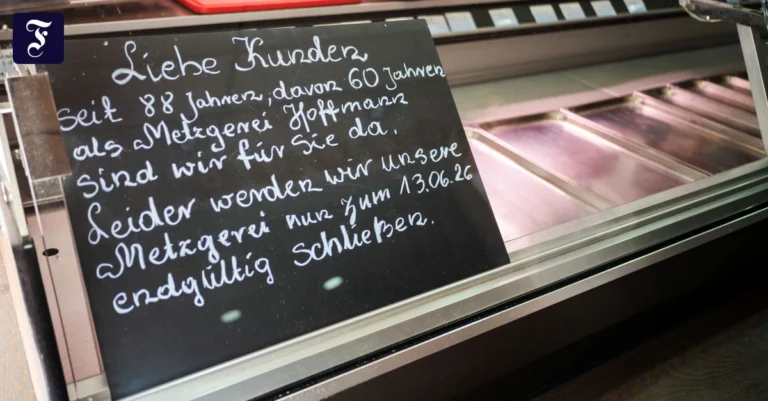 F
Liebe Kunden
Seit 88 Jahren, davon 60 Jahren
als Metzgerei Hoffmann
sind wir für Sie da.
Leider werden wir unsere
Metzgerei nun zum 13.06.26
endgültig schließen.